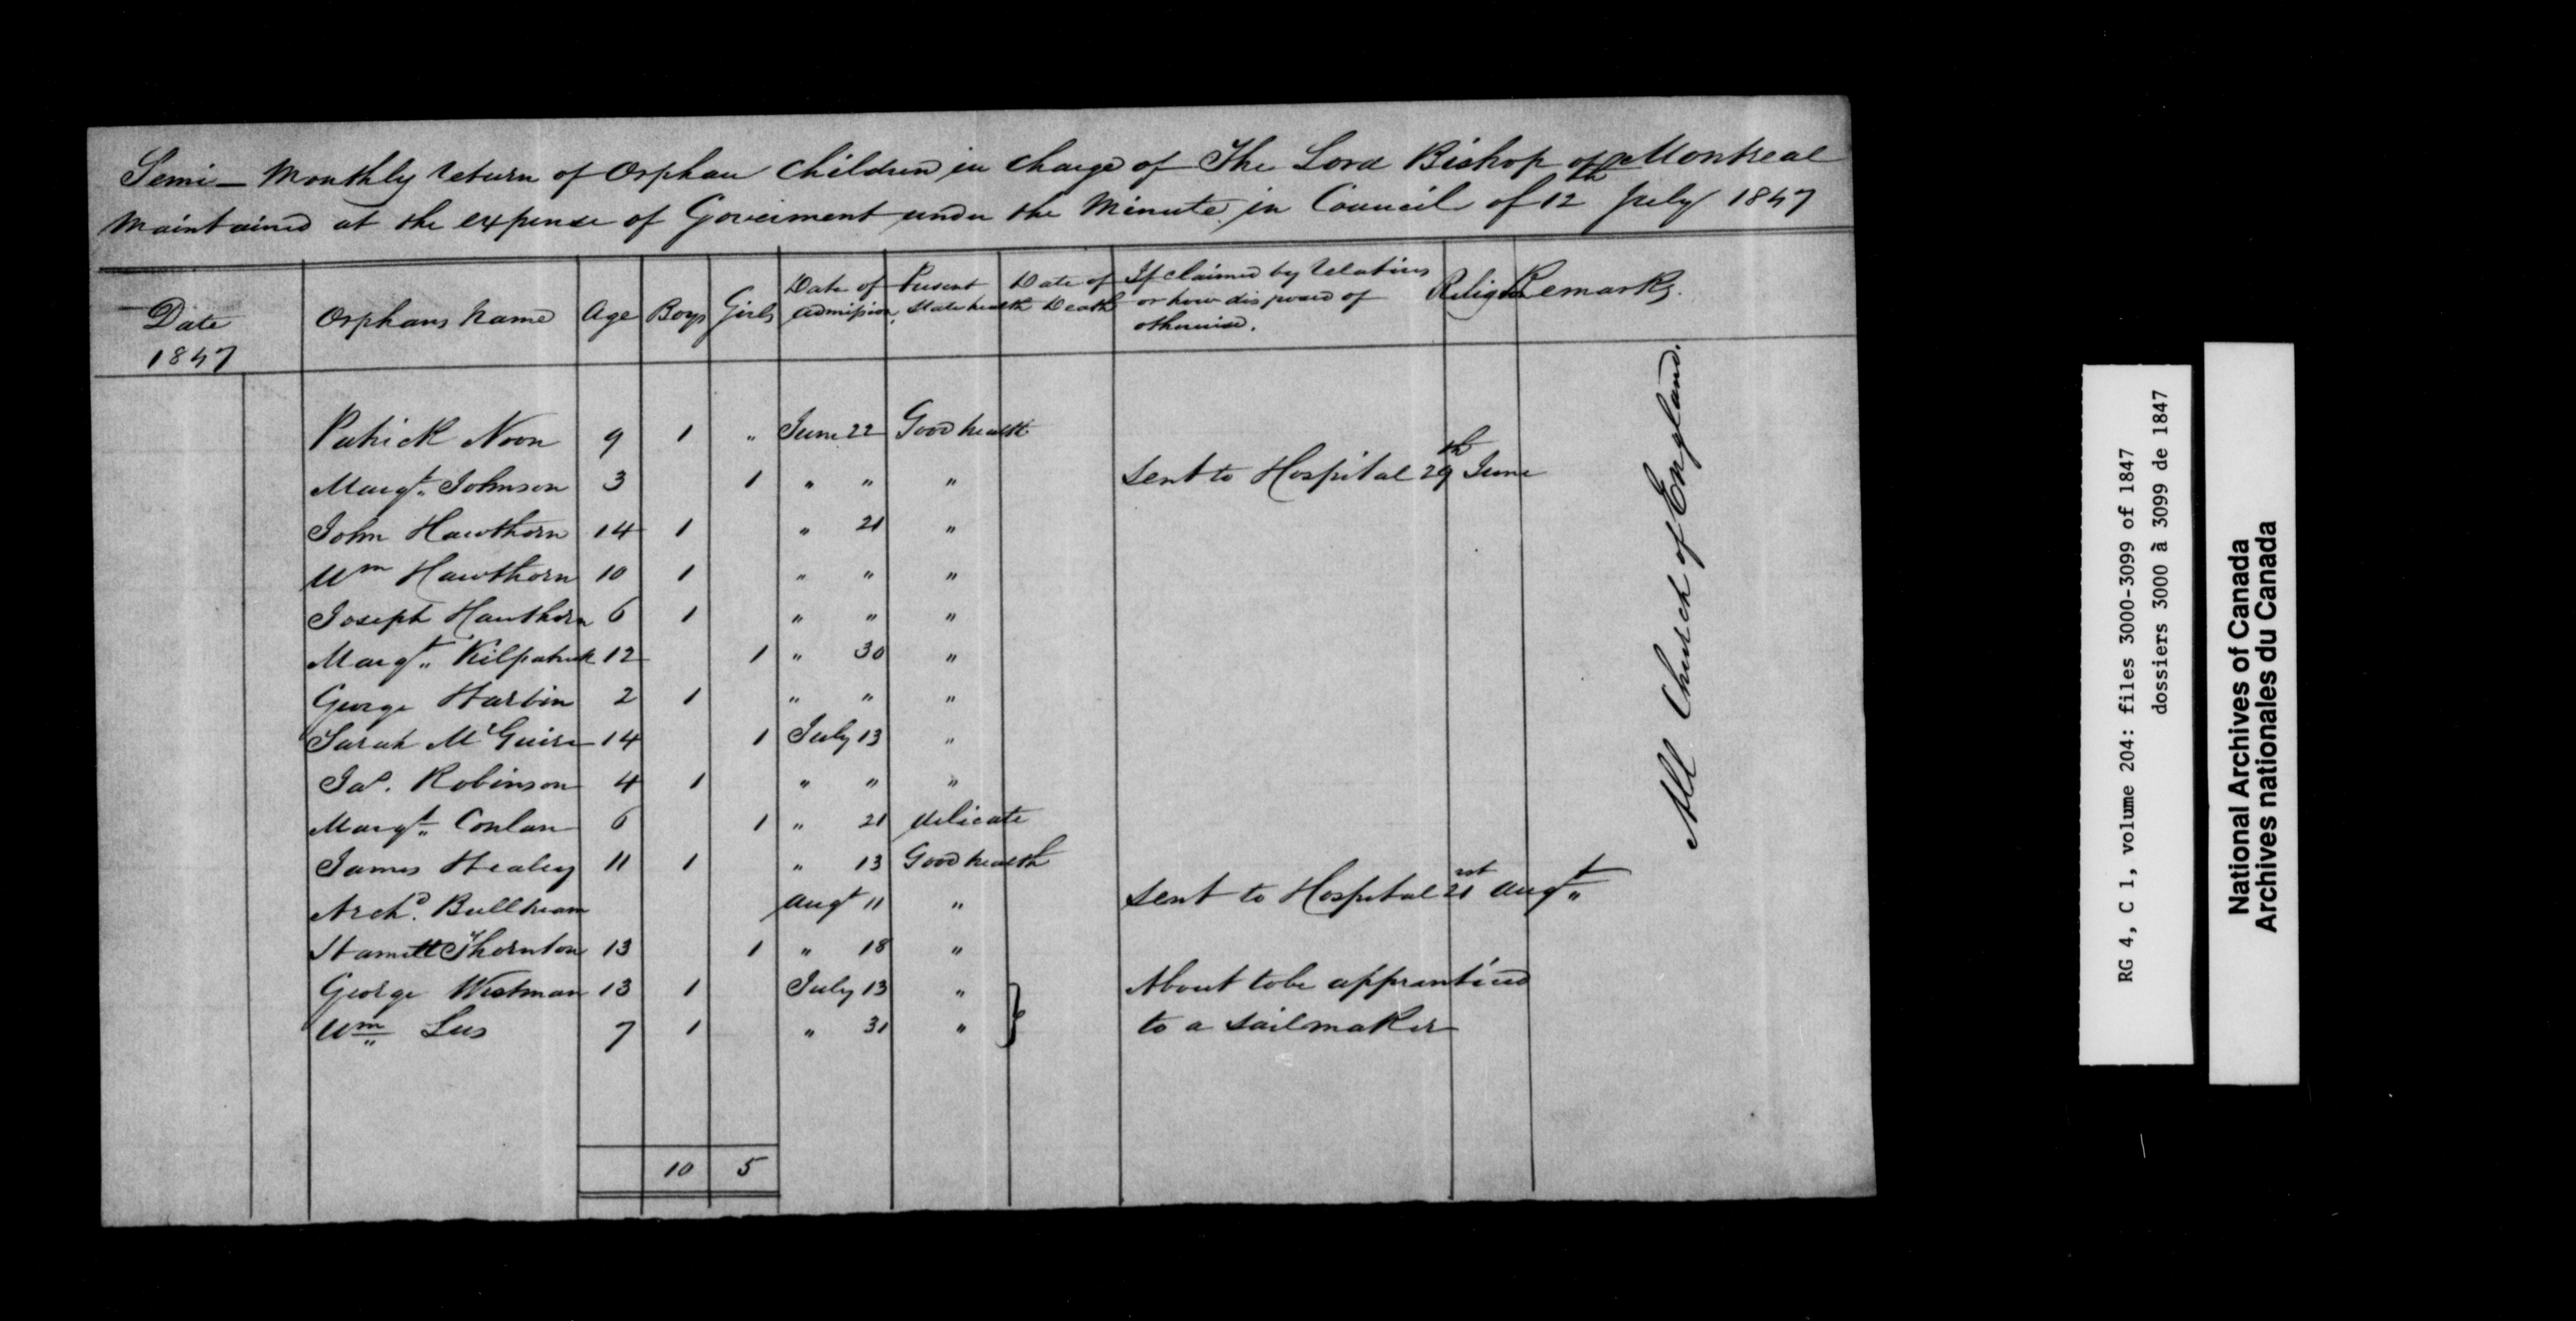 Semi - Monthly return of Orphan Children in charge of The Lord Bishop of Montreal
Maintained at the expense of Goverment under the Minute in Council of 12th July 1847
Date 1847 Orphans Name Age Boys Girls Date of admission Present State health Date of Death If claimed by relatives or how disposed of otherwise. Religion Remarks.
Patrick Noon 9 1 " June 22 Good health
Margt. Johnson 3 1 " " " Sent to Hospital 29th June
John Hawthorn 14 1 " 21 "
Wm Hawthorn 10 1 " " "
Joseph Hawthorn 6 1 " " "
Margt. Kilpatrick 12 1 " 30 "
George Harbin 2 1 " " "
Sarah McGuire 14 1 July 13 "
Jas. Robinson 4 1 " " "
Margt. Conlan 6 1 " 21 delicate
James Healey 11 1 " 13 Good health
Archd. Augt 11 " Sent to Hospital 21st Augt
Thornton 13 1 " 18 "
George Westman 13 1 July 13 " } About to be apprenticed
Wm Lees 7 1 " 31 " to a Sailmaker
10 5
All Church of England.
RG 4, C 1, volume 204: files 3000-3099 of 1847
dossiers 3000 à 3099 de 1847
National Archives of Canada
Archives nationales du Canada